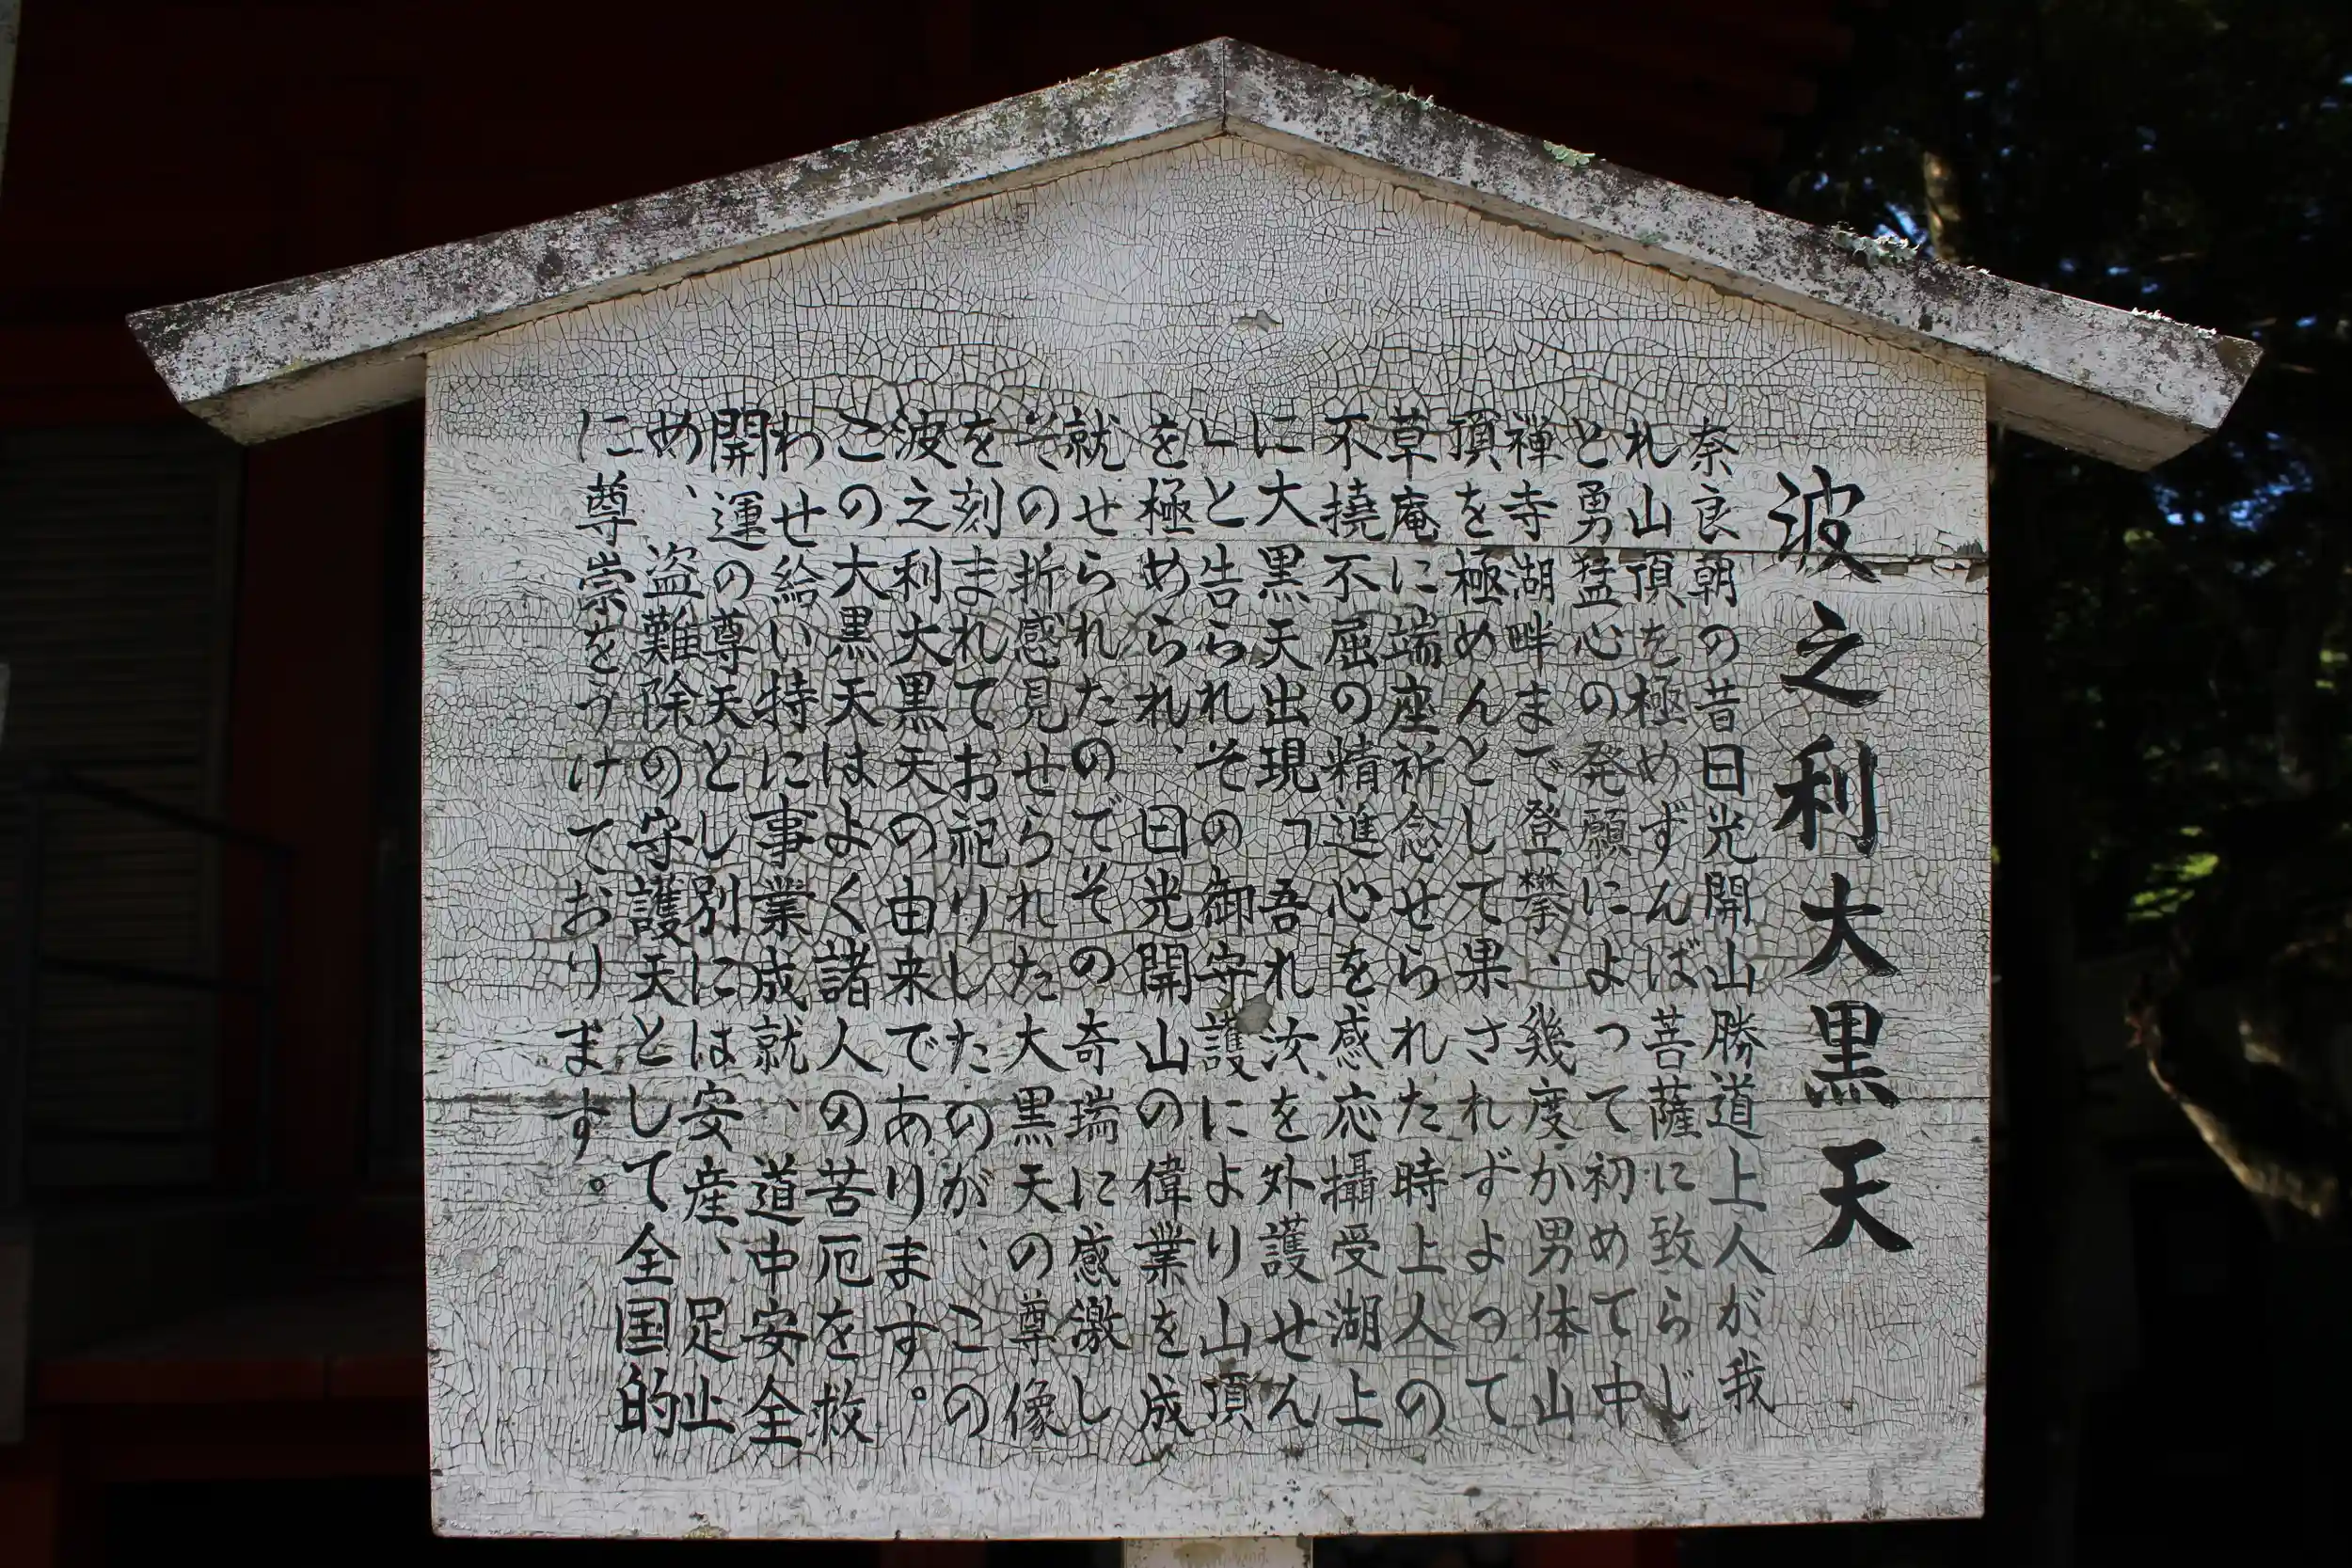 波之利大黒天
奈良朝の昔日光開山勝道上人が我
れ山頂を極めずんば菩薩に致らじ
と勇猛心の発願によって初めて中
禅寺湖畔まで登攀、幾度か男体山
頂を極めんとして果されずよって
草庵に端座祈念せられた時上人の
不撓不屈の精進心を感応攝受湖上
に大黒天出現「吾れ汝を外護せん
」と告られその御守護により山頂
を極められ、日光開山の偉業を成
就せられたのでその奇瑞に感激し
その折感見せられた大黒天の尊像
を刻まれてお祀りしたのが、この
波之利大黒天の由来であります。
この大黒天はよく諸人の苦厄を救
わせ給い特に事業成就、道中安全
開運の尊天とし別には安産、足止
め、盗難除の守護天として全国的
に尊崇をうけております。